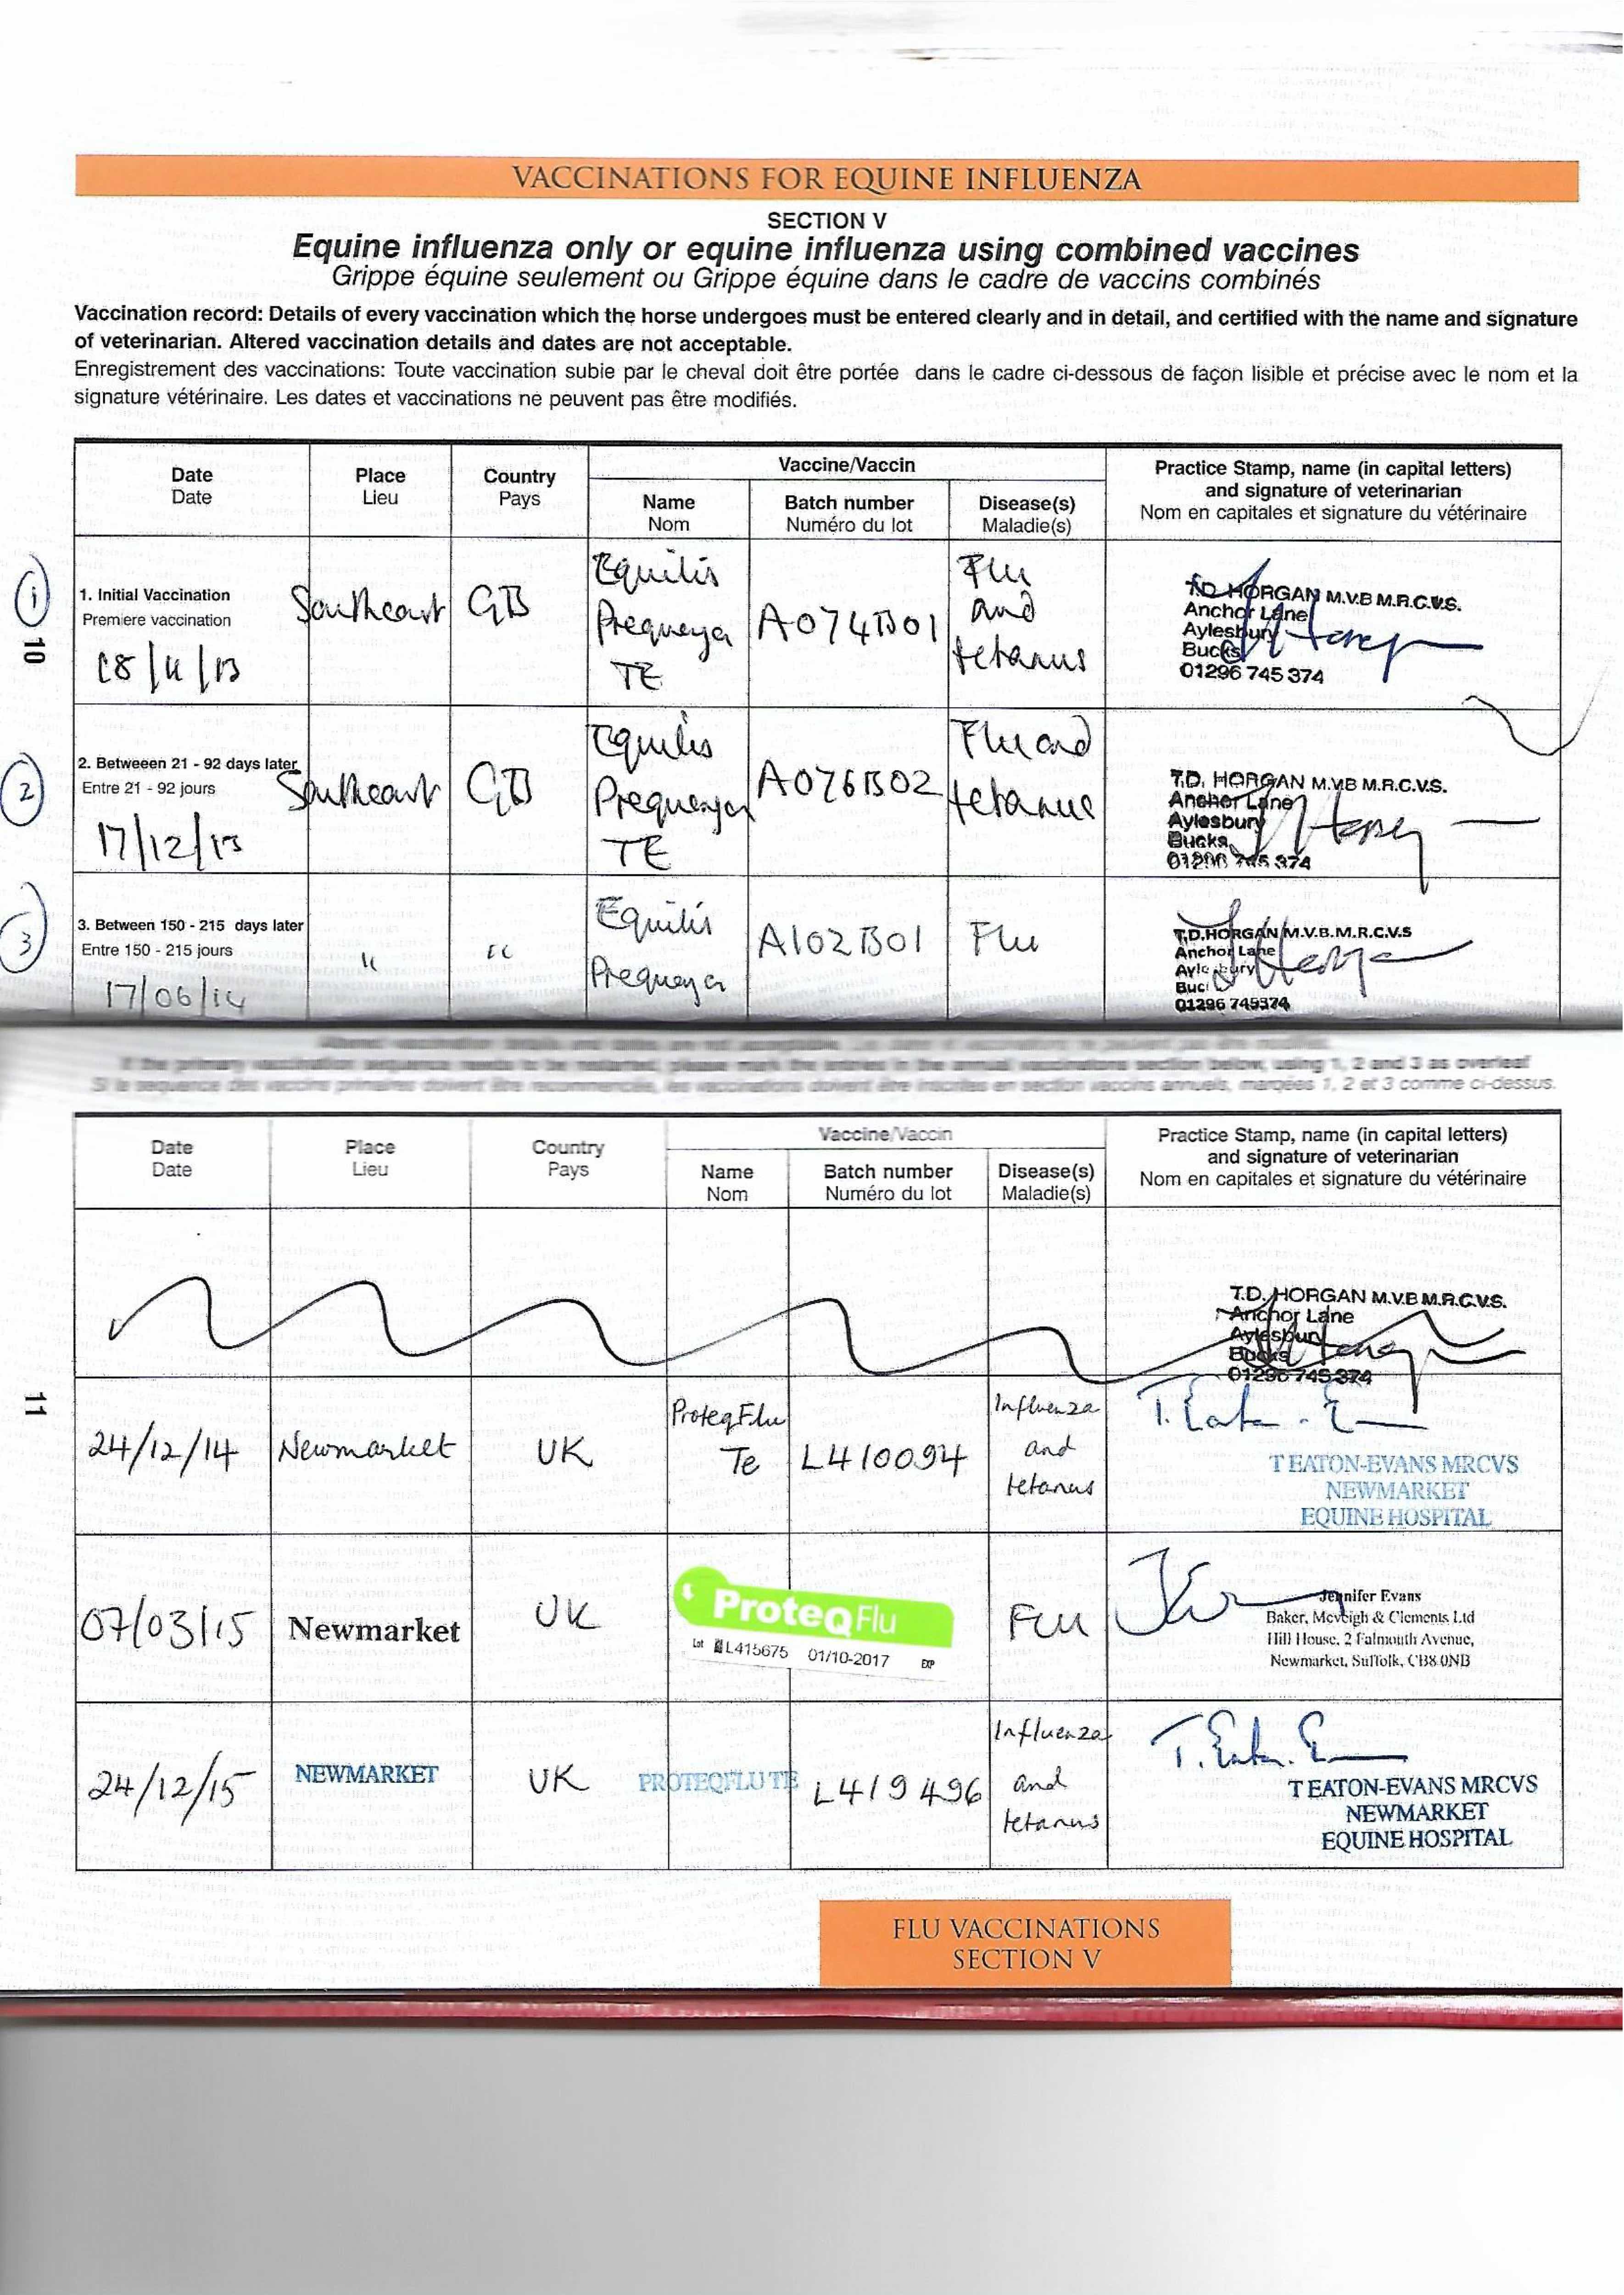 VACCINATIONS FOR EQUINE INFLUENZA
SECTION V
Equine influenza only or equine influenza using combined vaccines
Grippe équine seulement ou Grippe équine dans le cadre de vaccins combinés
Vaccination record: Details of every vaccination which the horse undergoes must be entered clearly and in detail, and certified with the name and signature
of veterinarian. Altered vaccination details and dates are not acceptable.
Enregistrement des vaccinations: Toute vaccination subie par le cheval doit être portée dans le cadre ci-dessous de façon lisible et précise avec le nom et la
signature vétérinaire. Les dates et vaccinations ne peuvent pas être modifiés.
Date
Date
Place
Lieu
Country
Pays
Vaccine/Vaccin
Name
Nom
Batch number
Numéro du lot
Disease(s)
Maladie(s)
Practice Stamp, name (in capital letters)
and signature of veterinarian
Nom en capitales et signature du vétérinaire
1
10
1. Initial Vaccination
Premiere vaccination
GB
Equilis
Prequenza
TE
A074B01
Flu
and
tetanus
T.D. HORGAN M.V.B M.R.C.V.S.
Anchor Lane
Aylesbury
Bucks
01296 745 374
2
2. Betweeen 21 - 92 days later
Entre 21 - 92 jours
17/12/13
GB
Equilis
Prequenza
TE
A076B02
Flu and
tetanus
T.D. HORGAN M.V.B M.R.C.V.S.
Anchor Lane
Aylesbury
Bucks
01296 745 374
3
3. Between 150 - 215 days later
Entre 150 - 215 jours
17/06/14
"
"
Equilis
Prequenza
A102B01
Flu
T.D.HORGAN M.V.B.M.R.C.V.S
Anchor Lane
Aylesbury
Buc
01296 745374
If the primary vaccination sequence needs to be restarted, please mark the entries in the annual vaccinations section below, using 1, 2 and 3 as overleaf
Si le sequence des vaccins primaires doivent être recommencés, les vaccinations doivent être inscrites en section vaccins annuels, marqées 1, 2 et 3 comme ci-dessus.
Date
Date
Place
Lieu
Country
Pays
Vaccine/Vaccin
Name
Nom
Batch number
Numéro du lot
Disease(s)
Maladie(s)
Practice Stamp, name (in capital letters)
and signature of veterinarian
Nom en capitales et signature du vétérinaire
T.D. HORGAN M.V.B M.R.C.V.S.
Anchor Lane
Aylesbury
Bucks
01296 745 374
11
24/12/14
Newmarket
UK
ProteqFlu
Te
L410094
Influenza
and
tetanus
T EATON-EVANS MRCVS
NEWMARKET
EQUINE HOSPITAL
07/03/15
Newmarket
UK
ProteqFlu
Lot L415675 01/10-2017 EXP
FLU
Jennifer Evans
Baker, Mcveigh & Clements Ltd
Hill House, 2 Falmouth Avenue,
Newmarket, Suffolk, CB8 0NB
24/12/15
NEWMARKET
UK
PROTEQFLU TE
L419496
Influenza
and
tetanus
T EATON-EVANS MRCVS
NEWMARKET
EQUINE HOSPITAL
FLU VACCINATIONS
SECTION V